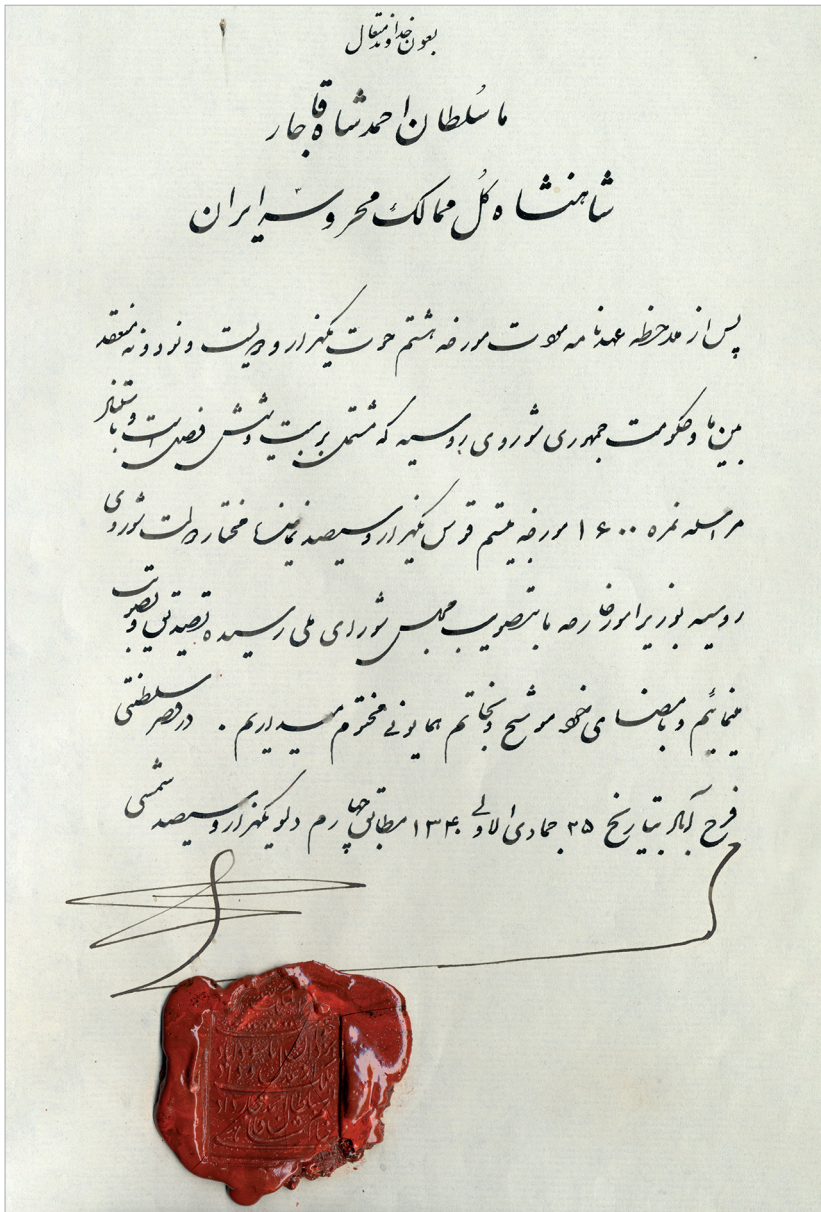 بعون خداوند متعال
ما سُلطان احمد شاه قاجار
شاهنشاه کُل ممالک محروسه ایران
پس از ملاحظه عهدنامه مودت مورخه هشتم حوت یکهزار و دویست و نود و نه منعقد
بین ما و حکومت جمهوری شوروی روسیه که مشتمل بر بیست و شش فصل است و باستناد
مراسله نمره ۱۶۰۰ مورخه بیستم قوس یکهزار و سیصد نماینده مختار دولت شوروی
روسیه بوزیر امور خارجه ما بتصویب مجلس شورای ملی رسیده تصدیق و تصویب
مینمائیم و بامضای خود موشح و بخاتم همایونی مختوم میداریم . در قصر سلطنتی
فرح آباد بتاریخ ۲۵ جمادی الاولی ۱۳۴۰ مطابق چهارم دلو یکهزار و سیصد شمسی